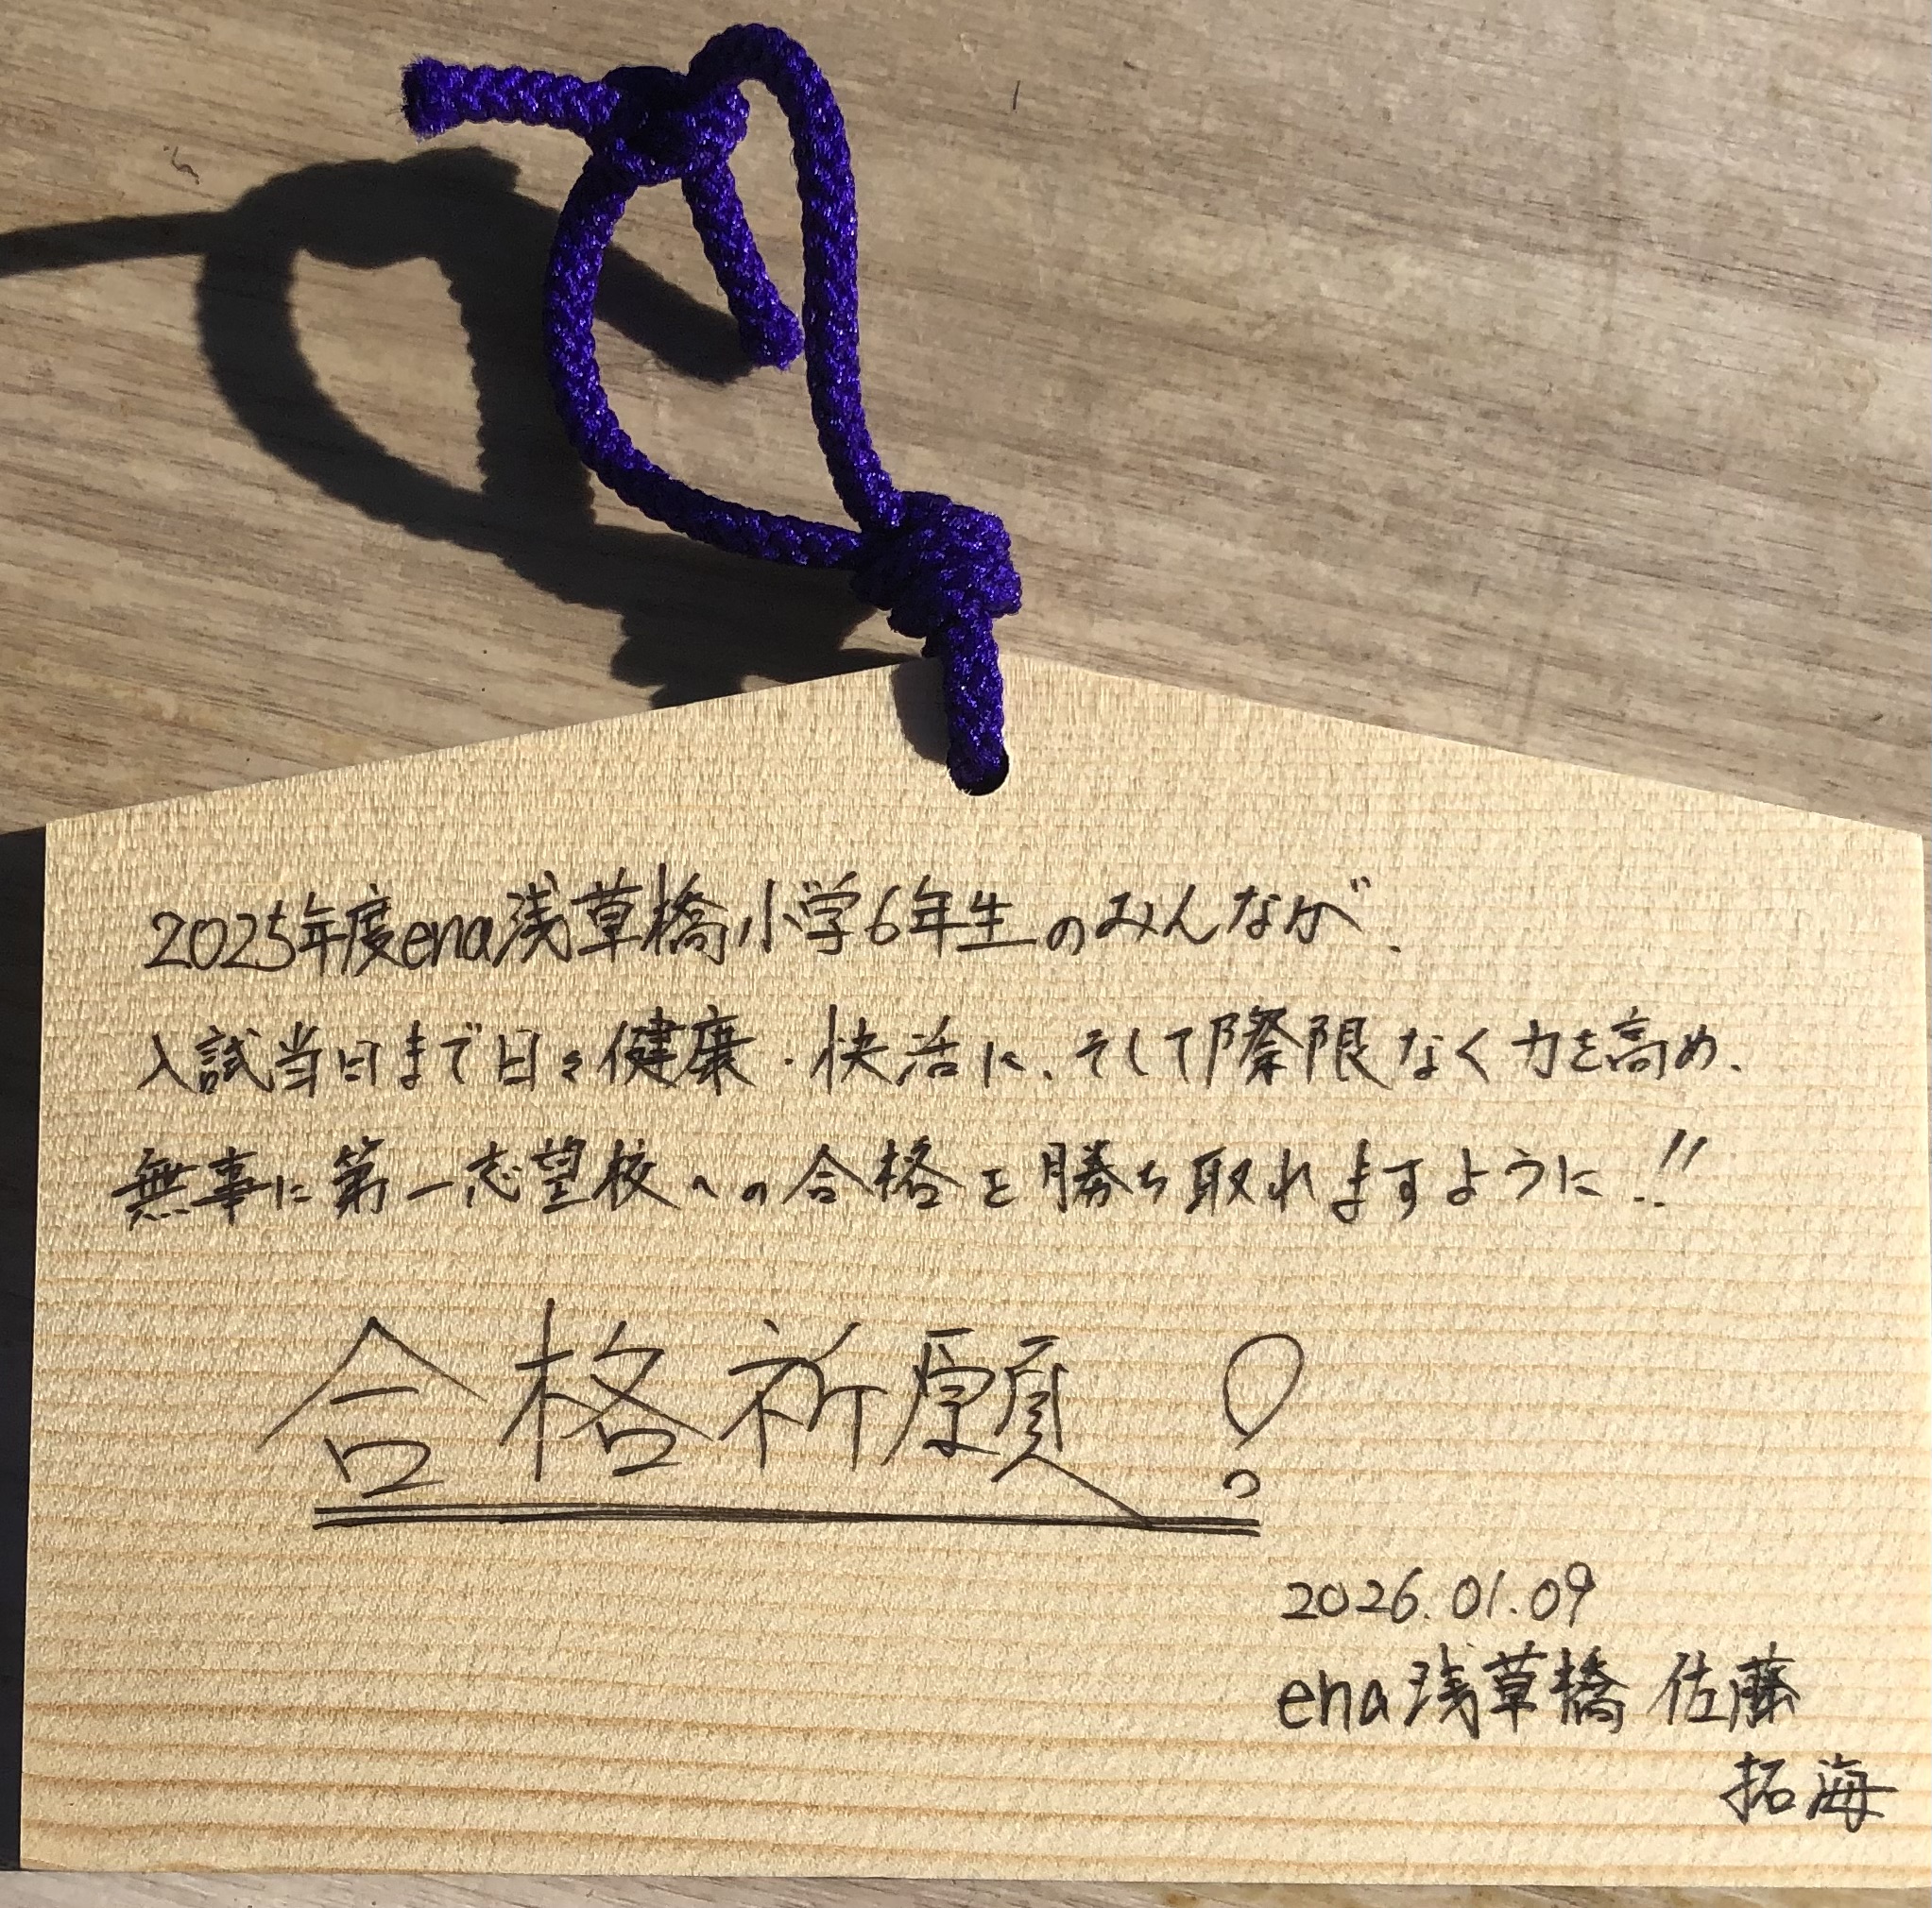 2025年度ena浅草橋小学6年生のみんなが、
入試当日まで日々健康・快活に、そして際限なく力を高め、
無事に第一志望校への合格を勝ち取れますように!!
合格祈願!
2026.01.09
ena浅草橋 佐藤
拓海